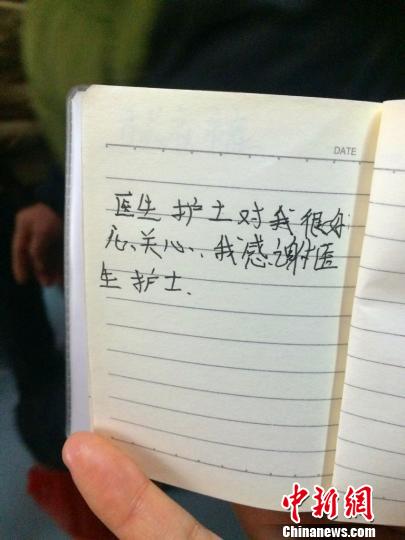 DATE
医生护士对我很好
关心、我感谢医
生护士.
中新网
Chinanews.com